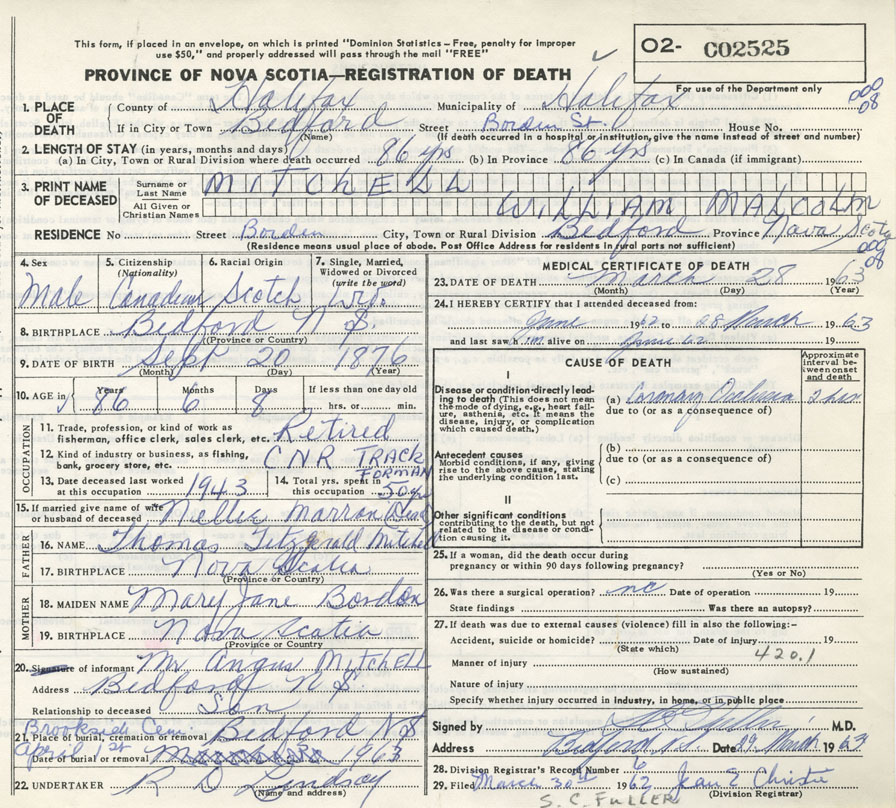 This form, if placed in an envelope, on which is printed "Dominion Statistics—Free, penalty for improper
use $50," and properly addressed will pass through the mail "FREE"
PROVINCE OF NOVA SCOTIA—REGISTRATION OF DEATH
O2- C02525
For use of the Department only
000
08
1. PLACE OF DEATH County of Halifax Municipality of Halifax
If in City or Town Bedford Street Borden St. House No.
(Name) (If death occurred in a hospital or institution, give the name instead of street and number)
2. LENGTH OF STAY (in years, months and days)
(a) In City, Town or Rural Division where death occurred 86 yrs (b) In Province 86 yrs (c) In Canada (if immigrant)
3. PRINT NAME OF DECEASED Surname or Last Name MITCHELL
All Given or Christian Names WILLIAM MALCOLM
RESIDENCE No Street Borden City, Town or Rural Division Bedford Province Nova Scotia
(Residence means usual place of abode. Post Office Address for residents in rural parts not sufficient)
000
08
4. Sex 5. Citizenship (Nationality) 6. Racial Origin 7. Single, Married, Widowed or Divorced (write the word)
Male Canadian Scotch Wd.
8. BIRTHPLACE Bedford N S.
(Province or Country)
9. DATE OF BIRTH Sept 20 1876
(Month) (Day) (Year)
10. AGE in Years 86 Months 6 Days 8 If less than one day old
hrs. or min.
OCCUPATION
11. Trade, profession, or kind of work as fisherman, office clerk, sales clerk, etc. Retired
12. Kind of industry or business, as fishing, bank, grocery store, etc. CNR TRACK FORMAN
13. Date deceased last worked at this occupation 1943 14. Total yrs. spent in this occupation 50 yrs
15. If married give name of wife or husband of deceased Nellie Marron (Dead)
FATHER
16. NAME Thomas Fitzgerald Mitchell
17. BIRTHPLACE Nova Scotia
(Province or Country)
MOTHER
18. MAIDEN NAME Mary Jane Bordon
19. BIRTHPLACE Nova Scotia
(Province or Country)
20. Signature of informant Mr Angus Mitchell
Address Bedford N S
Relationship to deceased Son
Brookside Cem.
21. Place of burial, cremation or removal Bedford NS
April 1st
Date of burial or removal 1963
22. UNDERTAKER R D Lindsay
(Name and address)
MEDICAL CERTIFICATE OF DEATH
23. DATE OF DEATH March 28 1963
(Month) (Day) (Year)
24. I HEREBY CERTIFY that I attended deceased from:
June 1962 to 28 March 1963
and last saw him alive on 19
CAUSE OF DEATH
Approximate interval between onset and death
I
Disease or condition directly leading to death (This does not mean the mode of dying, e.g., heart failure, asthenia, etc. It means the disease, injury, or complication which caused death.)
(a) Coronary Occlusion 2 hrs
due to (or as a consequence of)
Antecedent causes
Morbid conditions, if any, giving rise to above cause, stating the underlying condition last.
(b)
due to (or as a consequence of)
(c)
II
Other significant conditions
contributing to the death, but not related to the disease or condition causing it.
25. If a woman, did the death occur during
pregnancy or within 90 days following pregnancy?
(Yes or No)
26. Was there a surgical operation? no Date of operation 19
State findings Was there an autopsy?
27. If death was due to external causes (violence) fill in also the following:-
Accident, suicide or homicide? Date of injury 19
(State which)
420.1
Manner of injury
(How sustained)
Nature of injury
Specify whether injury occurred in industry, in home, or in public place
Signed by M.D.
Address Bedford N.S. Date 29 March 1963
28. Division Registrar's Record Number 6
29. Filed March 30th 1963 Jean E Christie
(Division Registrar)
S. C. FULLER